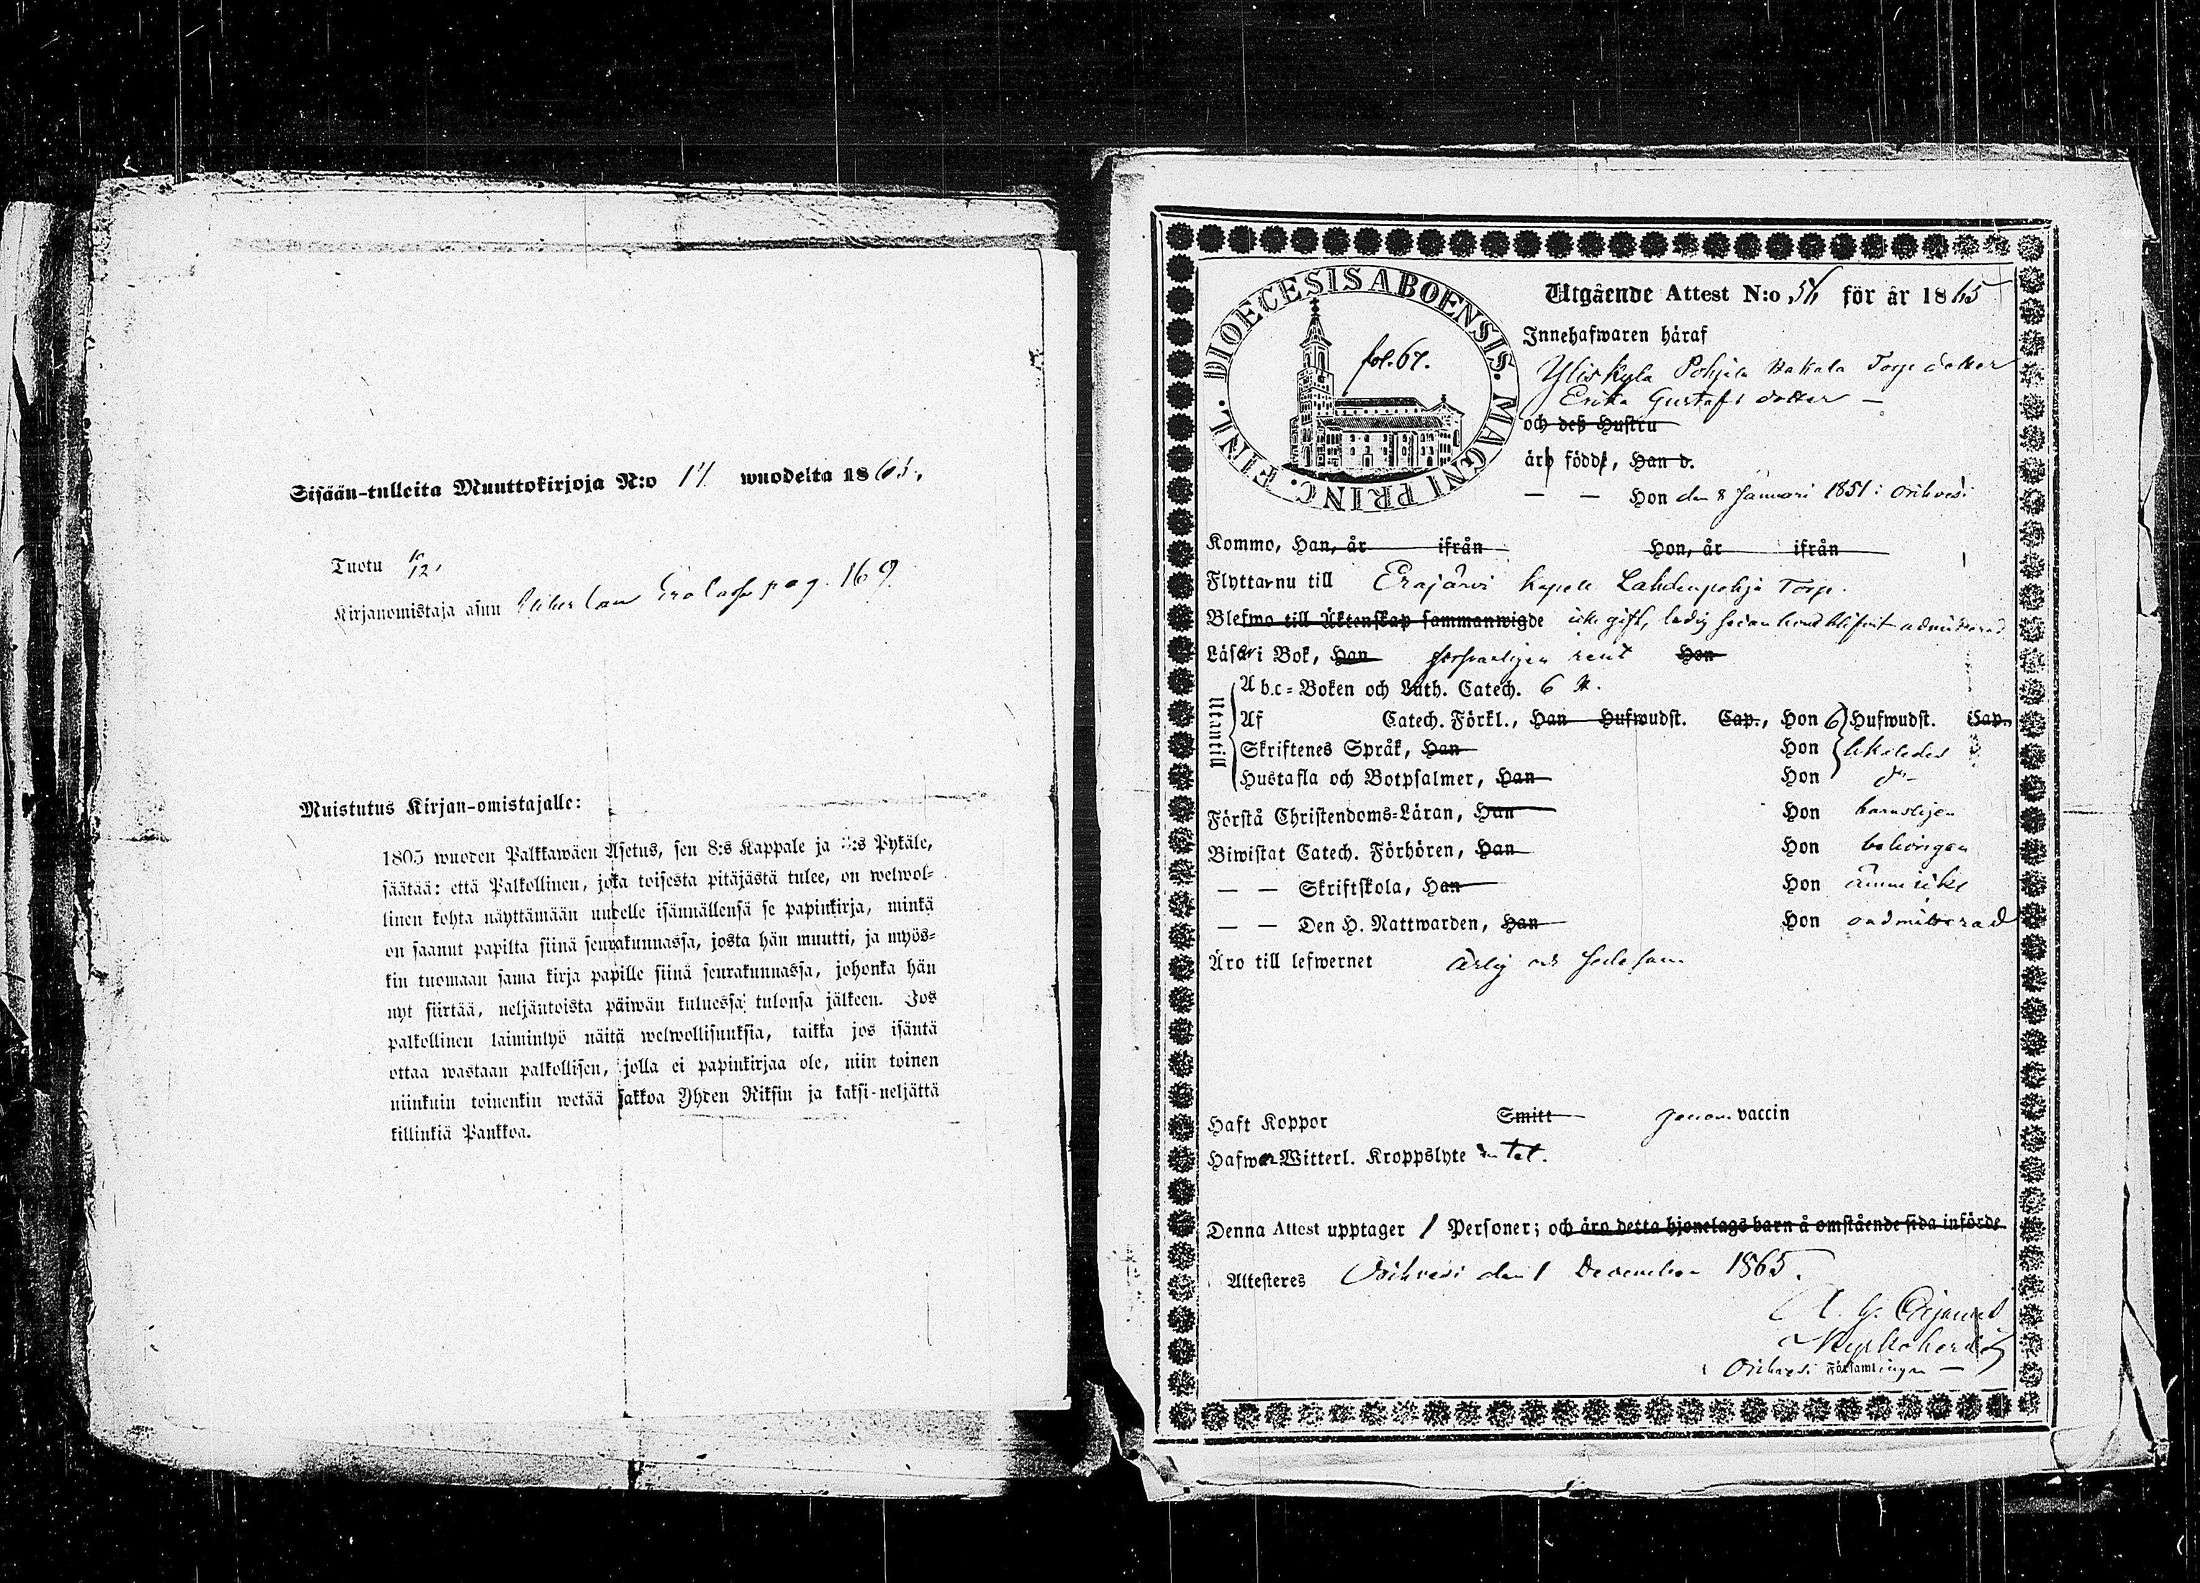 Sisään-tulleita Muuttokirjoja N:o 17 wuodelta 1865.
Tuotu 10/12.
Kirjanomistaja asuu pag. 169
Muistutus Kirjan-omistajalle:
1805 wuoden Palkkawäen Asetus, sen 8:s Kappale ja 3:s Pykäle,
säätää: että Palkollinen, joka toisesta pitäjästä tulee, on welwol-
linen kohta näyttämään uudelle isännällensä se papinkirja, minkä
on saanut papilta siinä seurakunnassa, josta hän muutti, ja myös-
kin tuomaan sama kirja papille siinä seurakunnassa, johonka hän
nyt siirtää, neljäntoista päiwän kuluessa tulonsa jälkeen. Jos
palkollinen laiminlyö näitä welwollisuuksia, taikka jos isäntä
ottaa wastaan palkollisen, jolla ei papinkirjaa ole, niin toinen
niinkuin toinenkin wetää sakkoa Yhden Riksin ja kaksi-neljättä
killinkiä Pankkoa.
DIOECESIS ABOENSIS. MAGNI PRINC. FINL.
fol. 67.
Utgående Attest N:o 56 för år 1865
Innehafwaren häraf
Yliskylä Pohjila Hakala Torp dotter
Erika Gustafs dotter —
och deß Hustru
äro född, Han d.
— — Hon den 8 Januari 1851 i Orihvesi
Kommo, Han, år ifrån Hon, år ifrån
Flyttar nu till Erajärvi Kapell Lahdenpohja Torp.
Blefwo till Äktenskap sammanwigde icke gift, ledig
Läser i Bok, Han försvarligen rent Hon
Utantill
Abc-Boken och Luth. Catech. 6 st.
Af Catech. Förkl., Han Hufwudst. Cap., Hon 6 Hufwudst. Cap.
Skriftenes Språk, Han Hon likaledes
Hustafla och Botpsalmer, Han Hon
Förstå Christendoms-Läran, Han Hon barnsligen
Biwistat Catech. Förhören, Han Hon behörigen
— — Skriftskola, Han Hon ännu icke
— — Den H. Nattwarden, Han Hon oadmitterad
Äro till lefwernet ärlig och sedesam
Haft Koppor Smitt genom vaccin
Hafwer Witterl. Kroppslyte intet.
Denna Attest upptager 1 Personer; och äro detta hjonelags barn å omstående sida införde
Attesteres Orihvesi den 1 December 1865.
Kyrkoherde
Orihvesi Församlingen —